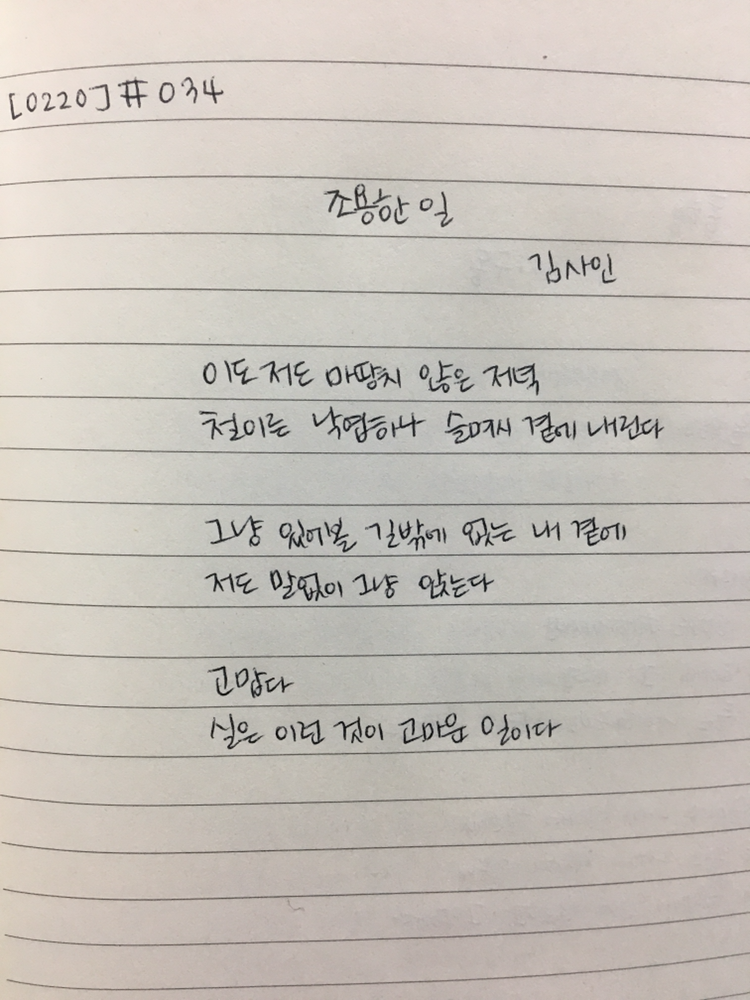 [0220] #034
조용한 일
김사인
이도 저도 마땅치 않은 저녁
철이른 낙엽하나 슬며시 곁에 내린다
그냥 있어볼 길밖에 없는 내 곁에
저도 말없이 그냥 앉는다
고맙다
실은 이런 것이 고마운 일이다